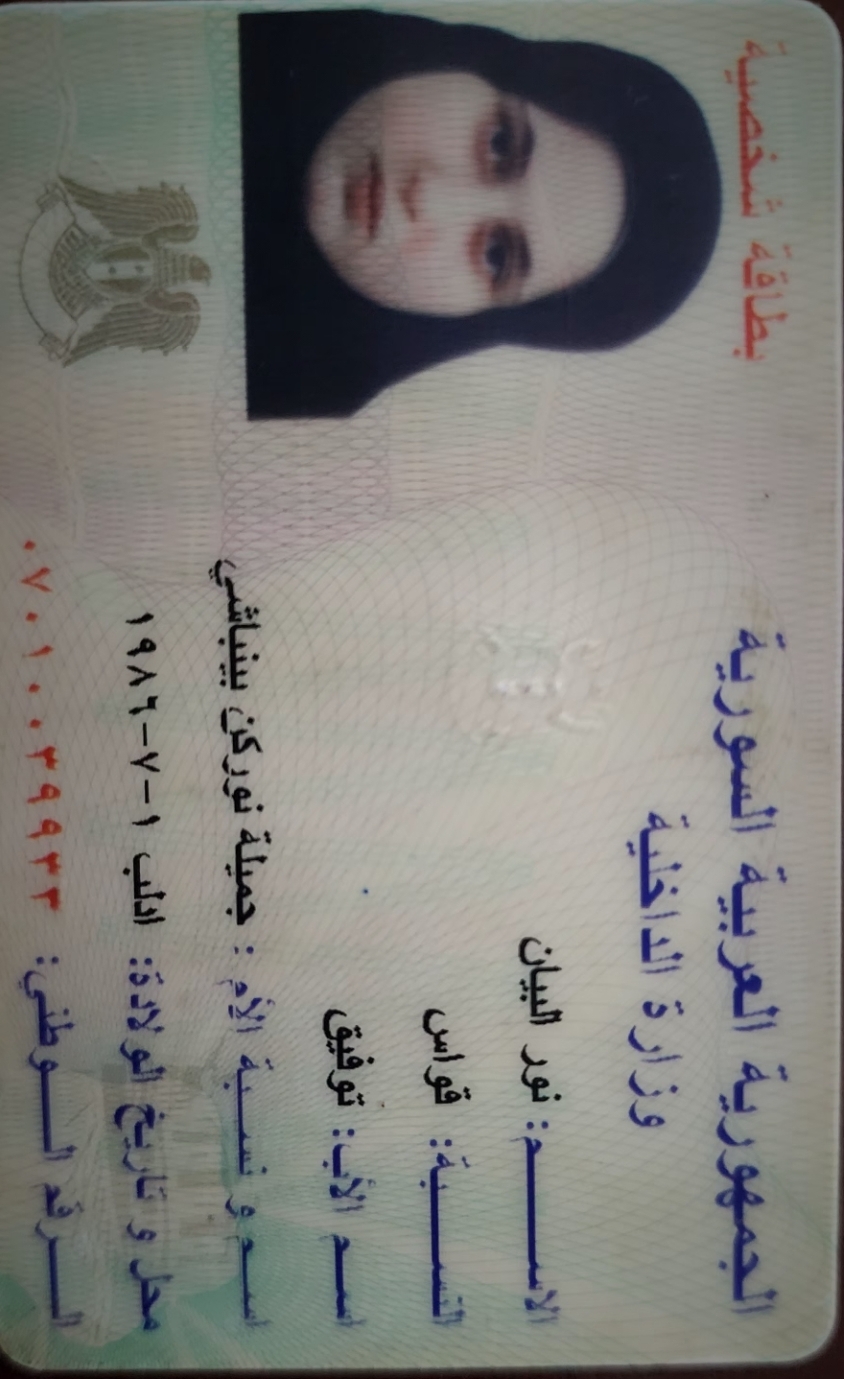 الجمهورية العربية السورية
وزارة الداخلية
بطاقة شخصية
الاسم: نور البيان
النسبة: قواس
اسم الأب: توفيق
اسم و نسبة الأم: جميلة نوركن بينباشي
محل و تاريخ الولادة: ادلب ١-٧-١٩٨٦
الرقم الوطني: ٠٧٠١٠٠٣٩٩٣٣